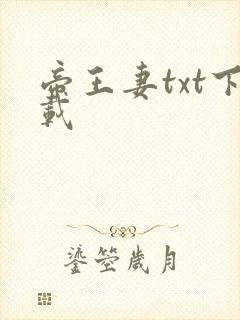 帝王妻txt下
載
鎏茔歲月